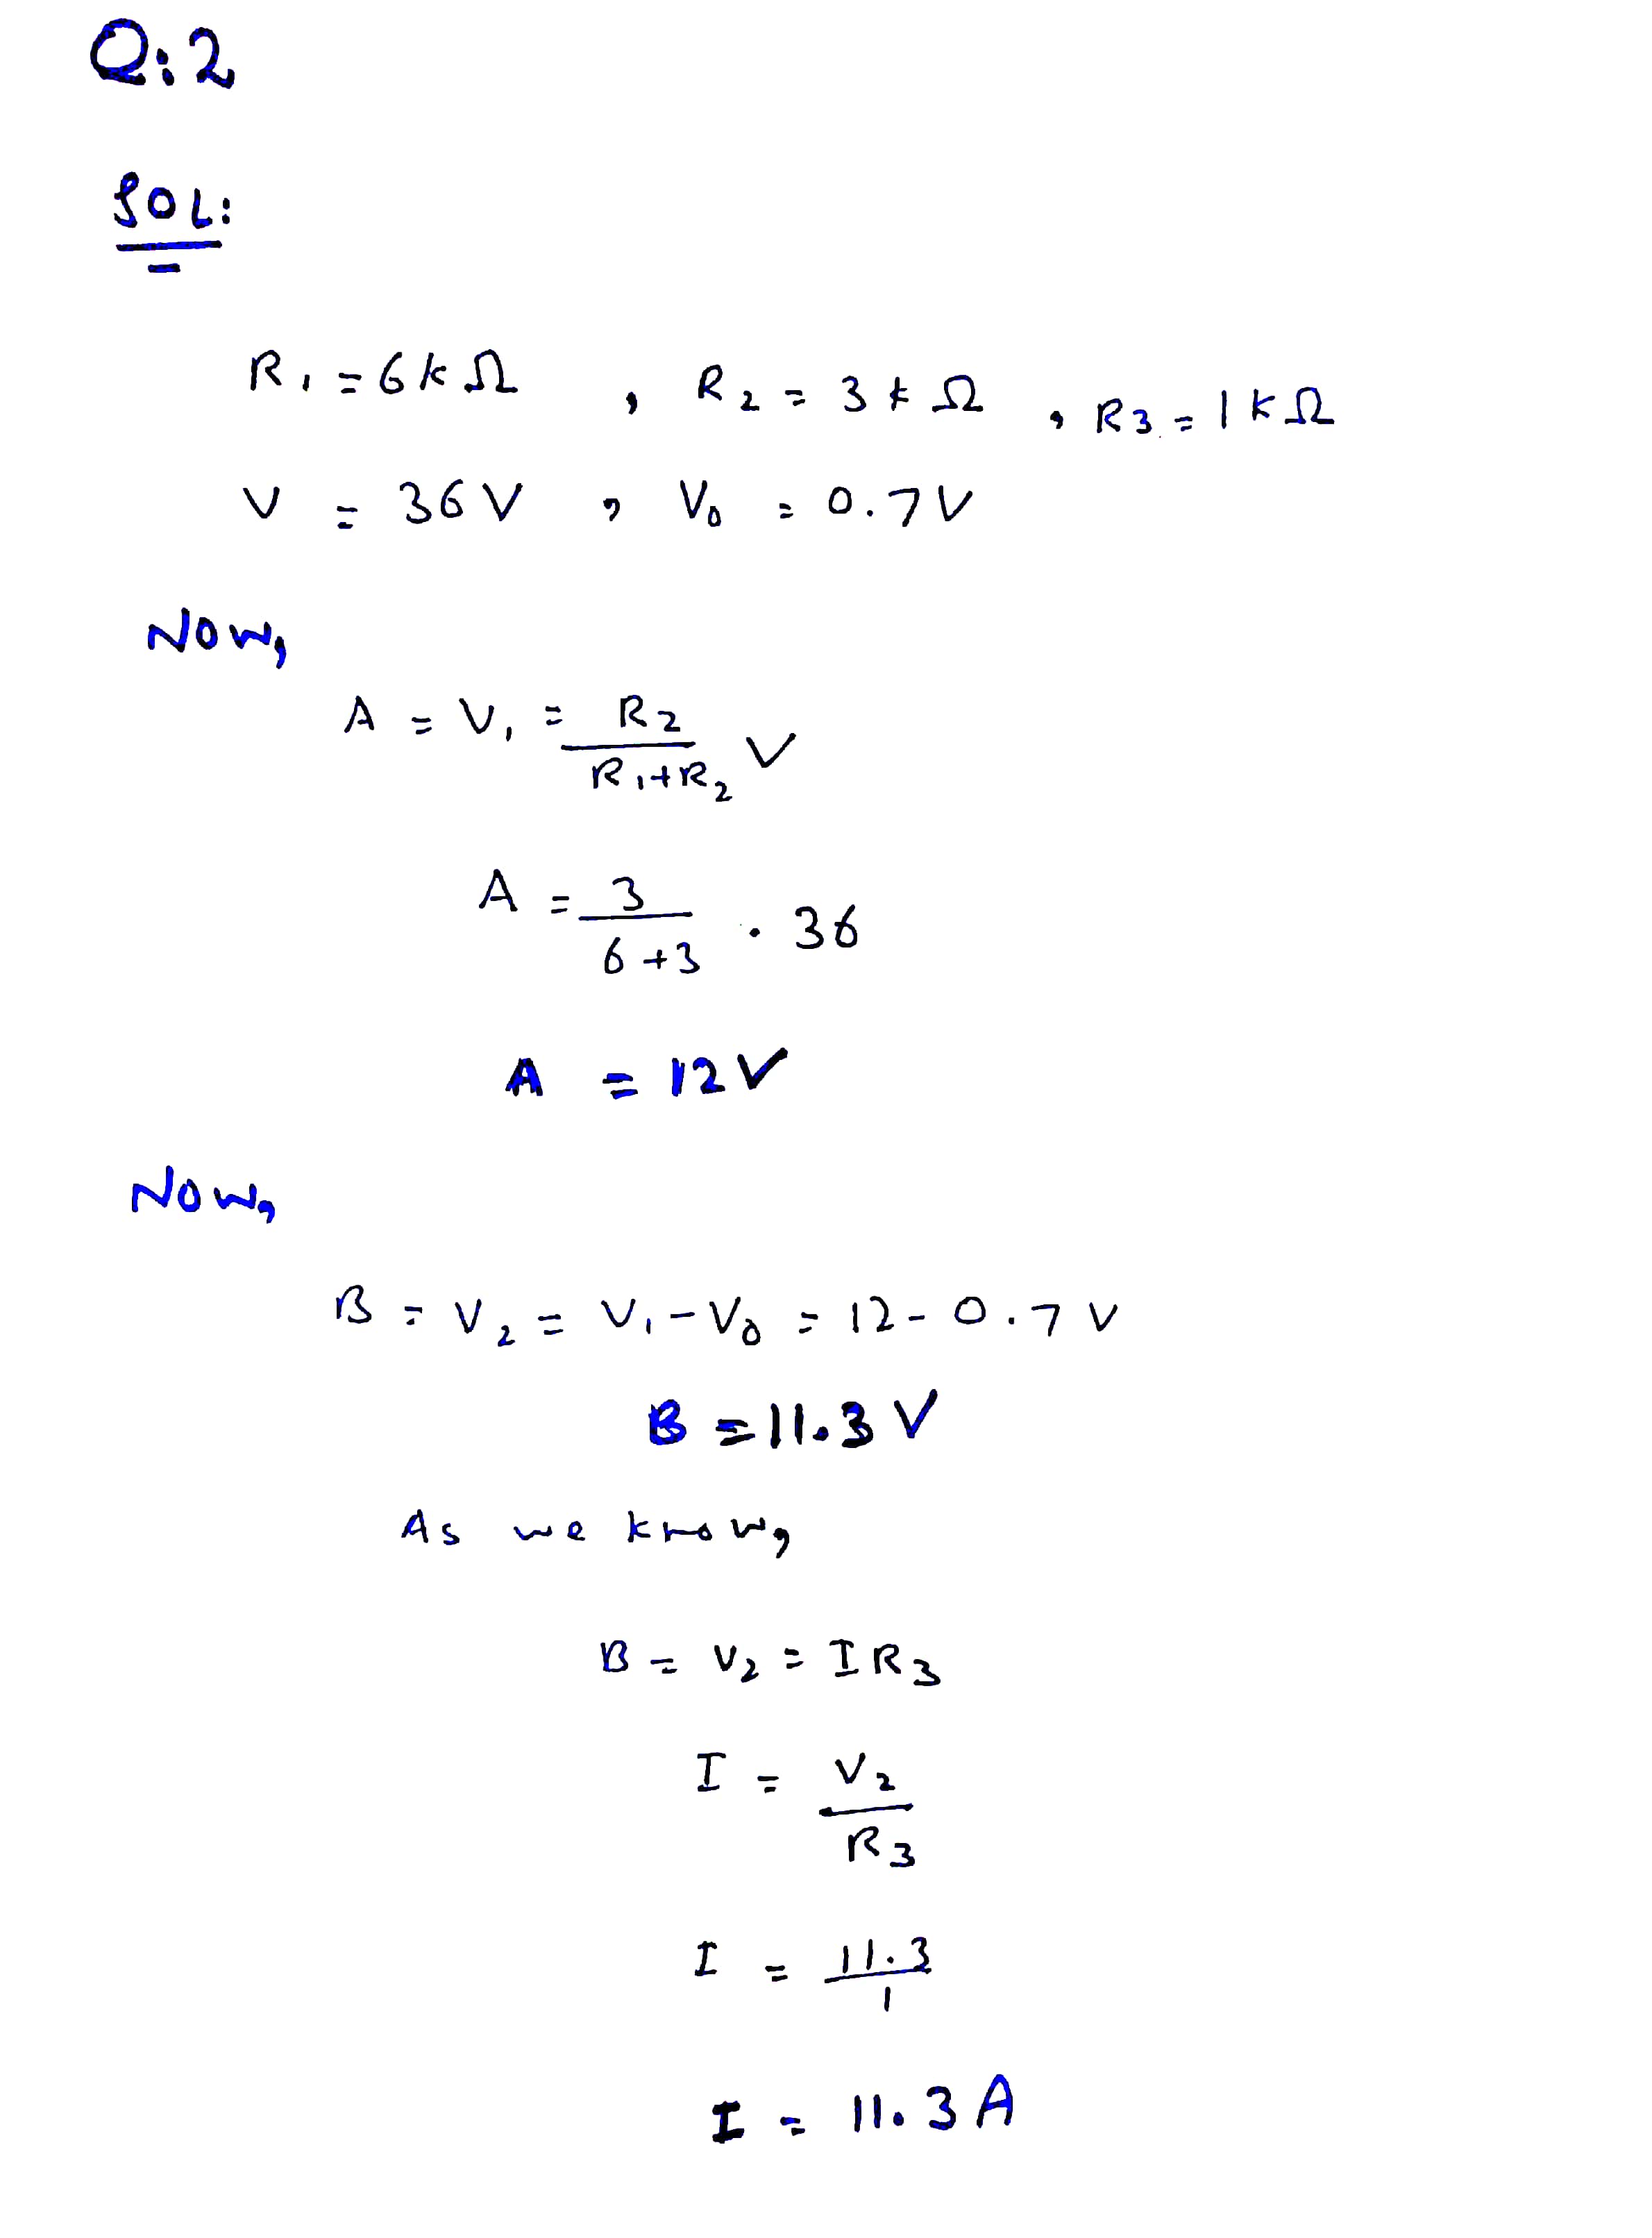 Q:2
SOL:
R1 = 6kΩ , R2 = 3kΩ , R3 = 1kΩ
V = 36V , V0 = 0.7V
Now,
A = V1 = R2
R1+R2 V
A = 3
6+3 . 36
A = 12V
Now,
B = V2 = V1 - V0 = 12 - 0.7 V
B = 11.3 V
As we know,
B = V2 = IR3
I = V2
R3
I = 11.3
1
I = 11.3 A